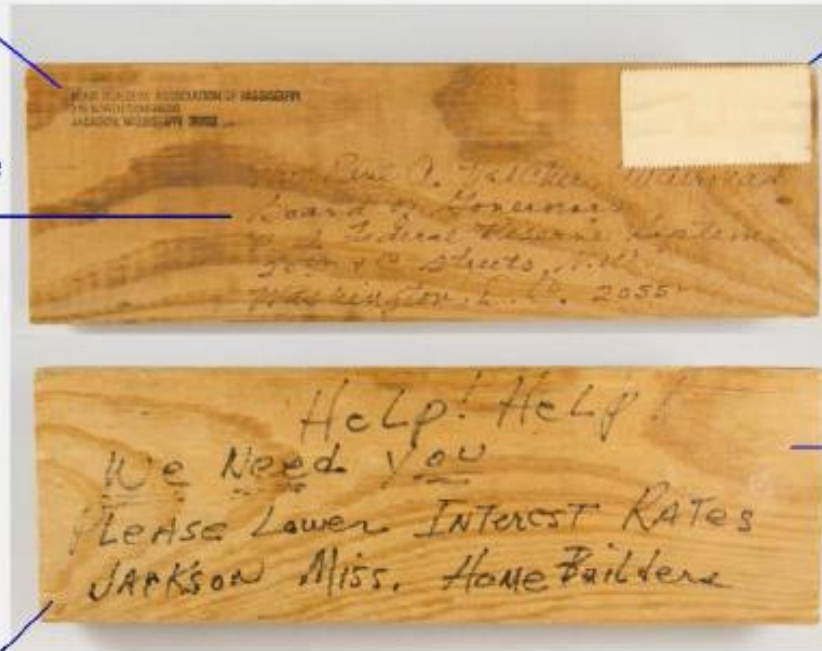 HOME BUILDERS ASSOCIATION OF MISSISSIPPI
JACKSON, MISSISSIPPI
Paul A.
Board of Governors
Federal Reserve System
20th & C Streets, N.W.
Washington, D.C. 2055
Help! Help!
We Need You
PLEASE Lower INTEREST RATES
JACKSON Miss. Home Builders
e